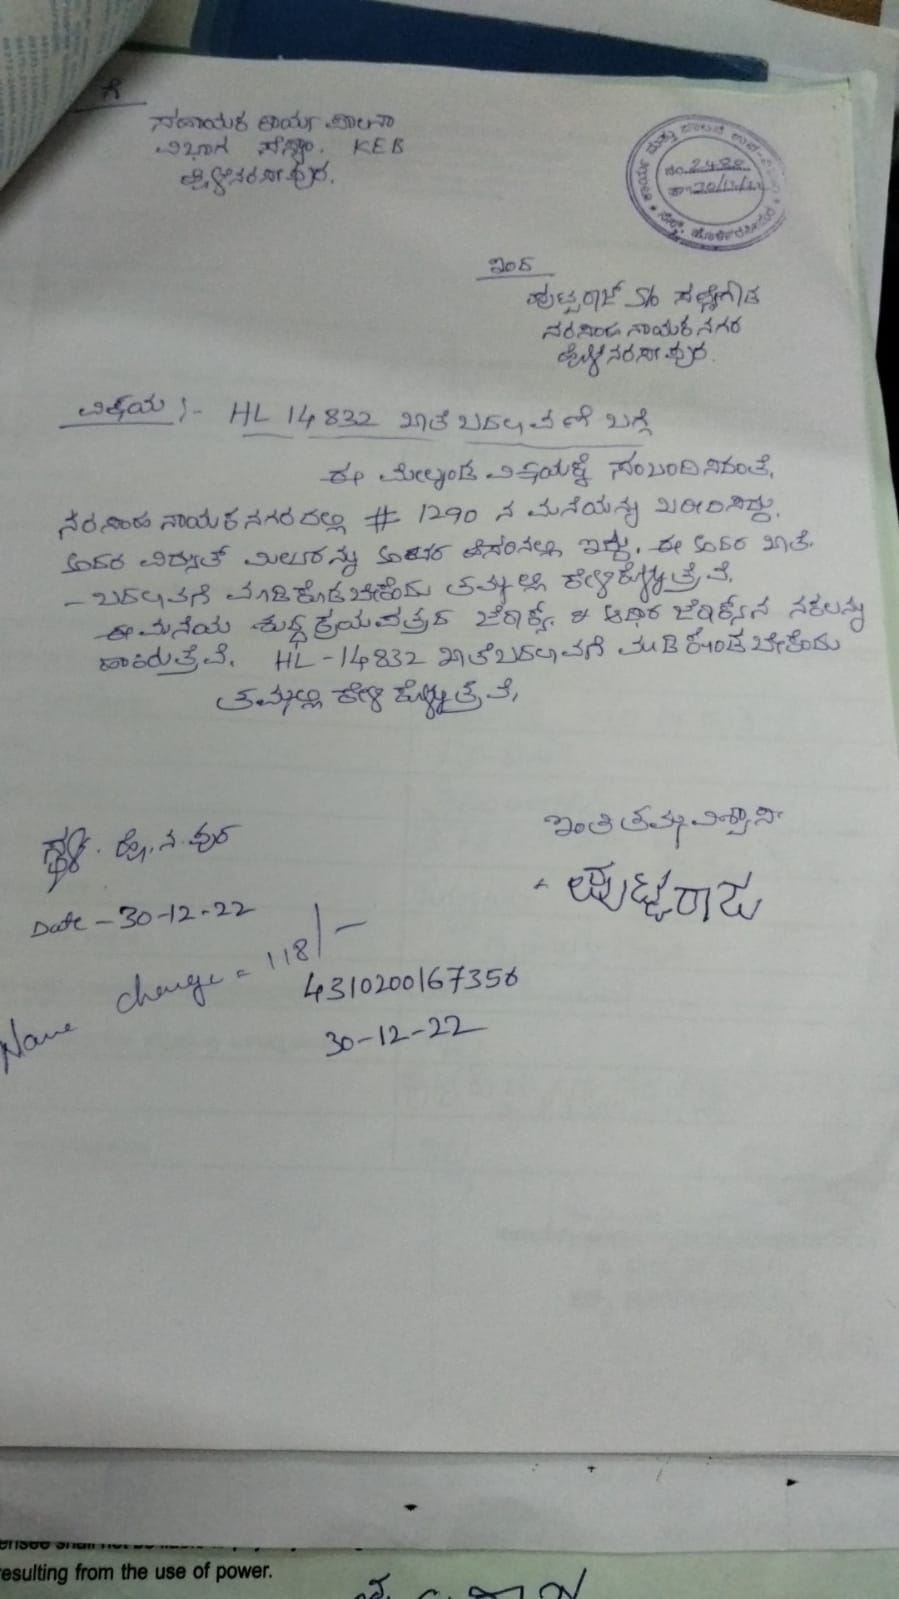 ಗೆ
ಸಹಾಯಕ ಕಾರ್ಯಪಾಲಕಾ
ವಿಭಾಗ ಸೆಸ್ಕಾಂ. KEB
ಹೊಳೆನರಸೀಪುರ.
ನಂ. 2488
ಇಂದ
ಪುಟ್ಟರಾಜ್ S/o ಸಣ್ಣೇಗೌಡ
ನರಸಿಂಹ ನಾಯಕ ನಗರ
ಹೊಳೆನರಸೀಪುರ.
ವಿಷಯ :- HL 14832 ಖಾತೆ ಬದಲಾವಣೆ ಬಗ್ಗೆ
ಈ ಮೇಲ್ಕಂಡ ವಿಷಯಕ್ಕೆ ಸಂಬಂದಿಸಿದಂತೆ,
ನರಸಿಂಹ ನಾಯಕ ನಗರದಲ್ಲಿ # 1290 ನ ಮನೆಯನ್ನು ಖರೀದಿಸಿದ್ದು.
ವಿದ್ಯುತ್ ಹೆಸರಿನಲ್ಲಿ ಇದ್ದು. ಈ ಖಾತೆ.
- ಬದಲಾವಣೆ ಮಾಡಿಕೊಡಬೇಕೆಂದು ತಮ್ಮಲ್ಲಿ ಕೇಳಿಕೊಳ್ಳುತ್ತೇವೆ.
ಈ ಮನೆಯ ಶುದ್ಧ ಕ್ರಯಪತ್ರದ ಜೆರಾಕ್ಸ್. & ಆಧಾರ ಜೆರಾಕ್ಸ್‌ನ ನಕಲನ್ನು
HL-14832 ಖಾತೆ ಬದಲಾವಣೆ ಮಾಡಿಕೊಡಬೇಕೆಂದು
ತಮ್ಮಲ್ಲಿ ಕೇಳಿಕೊಳ್ಳುತ್ತೇವೆ,
ಸ್ಥಳ. ಹೊ.ನ.ಪುರ
ಇಂತಿ ತಮ್ಮ ವಿಶ್ವಾಸಿ
ಪುಟ್ಟರಾಜು
Date - 30-12-22
Name change = 118/-
4310200167356
30-12-22
resulting from the use of power.